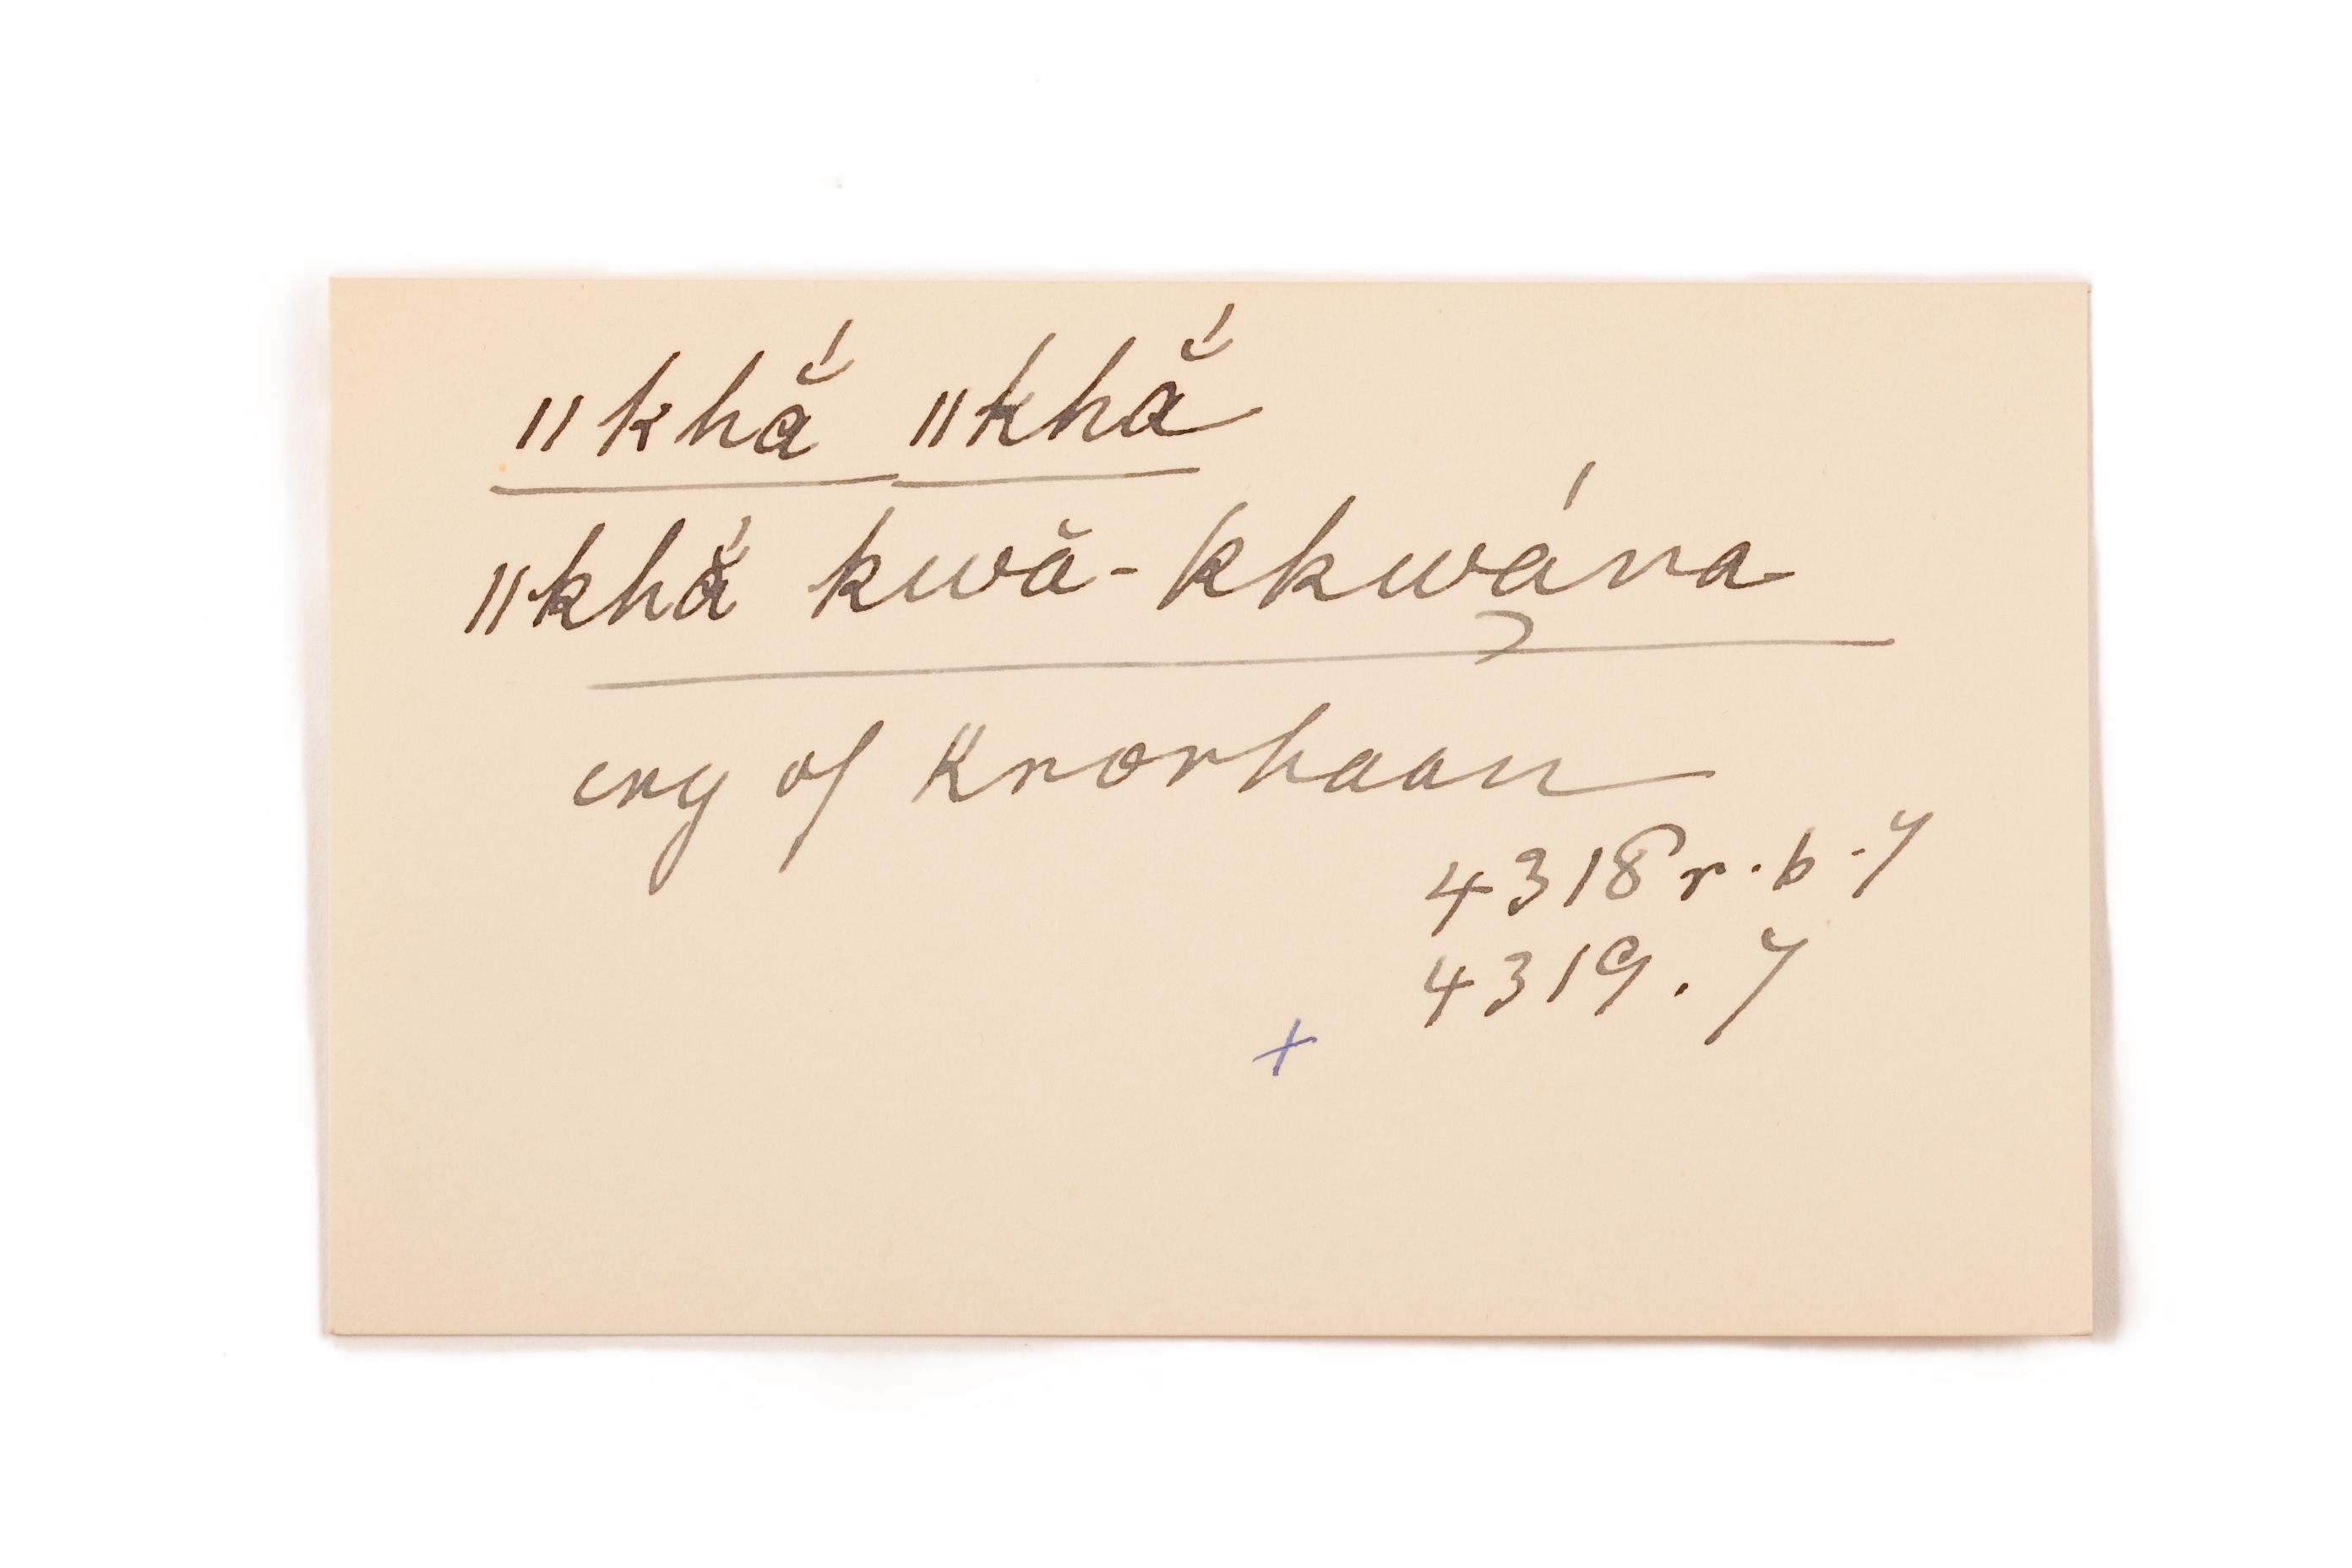 ǁkhắ ǁkhắ
ǁkhắ kwă-kkwána
cry of Knorhaan
4318 r.b.7
4319.7
+